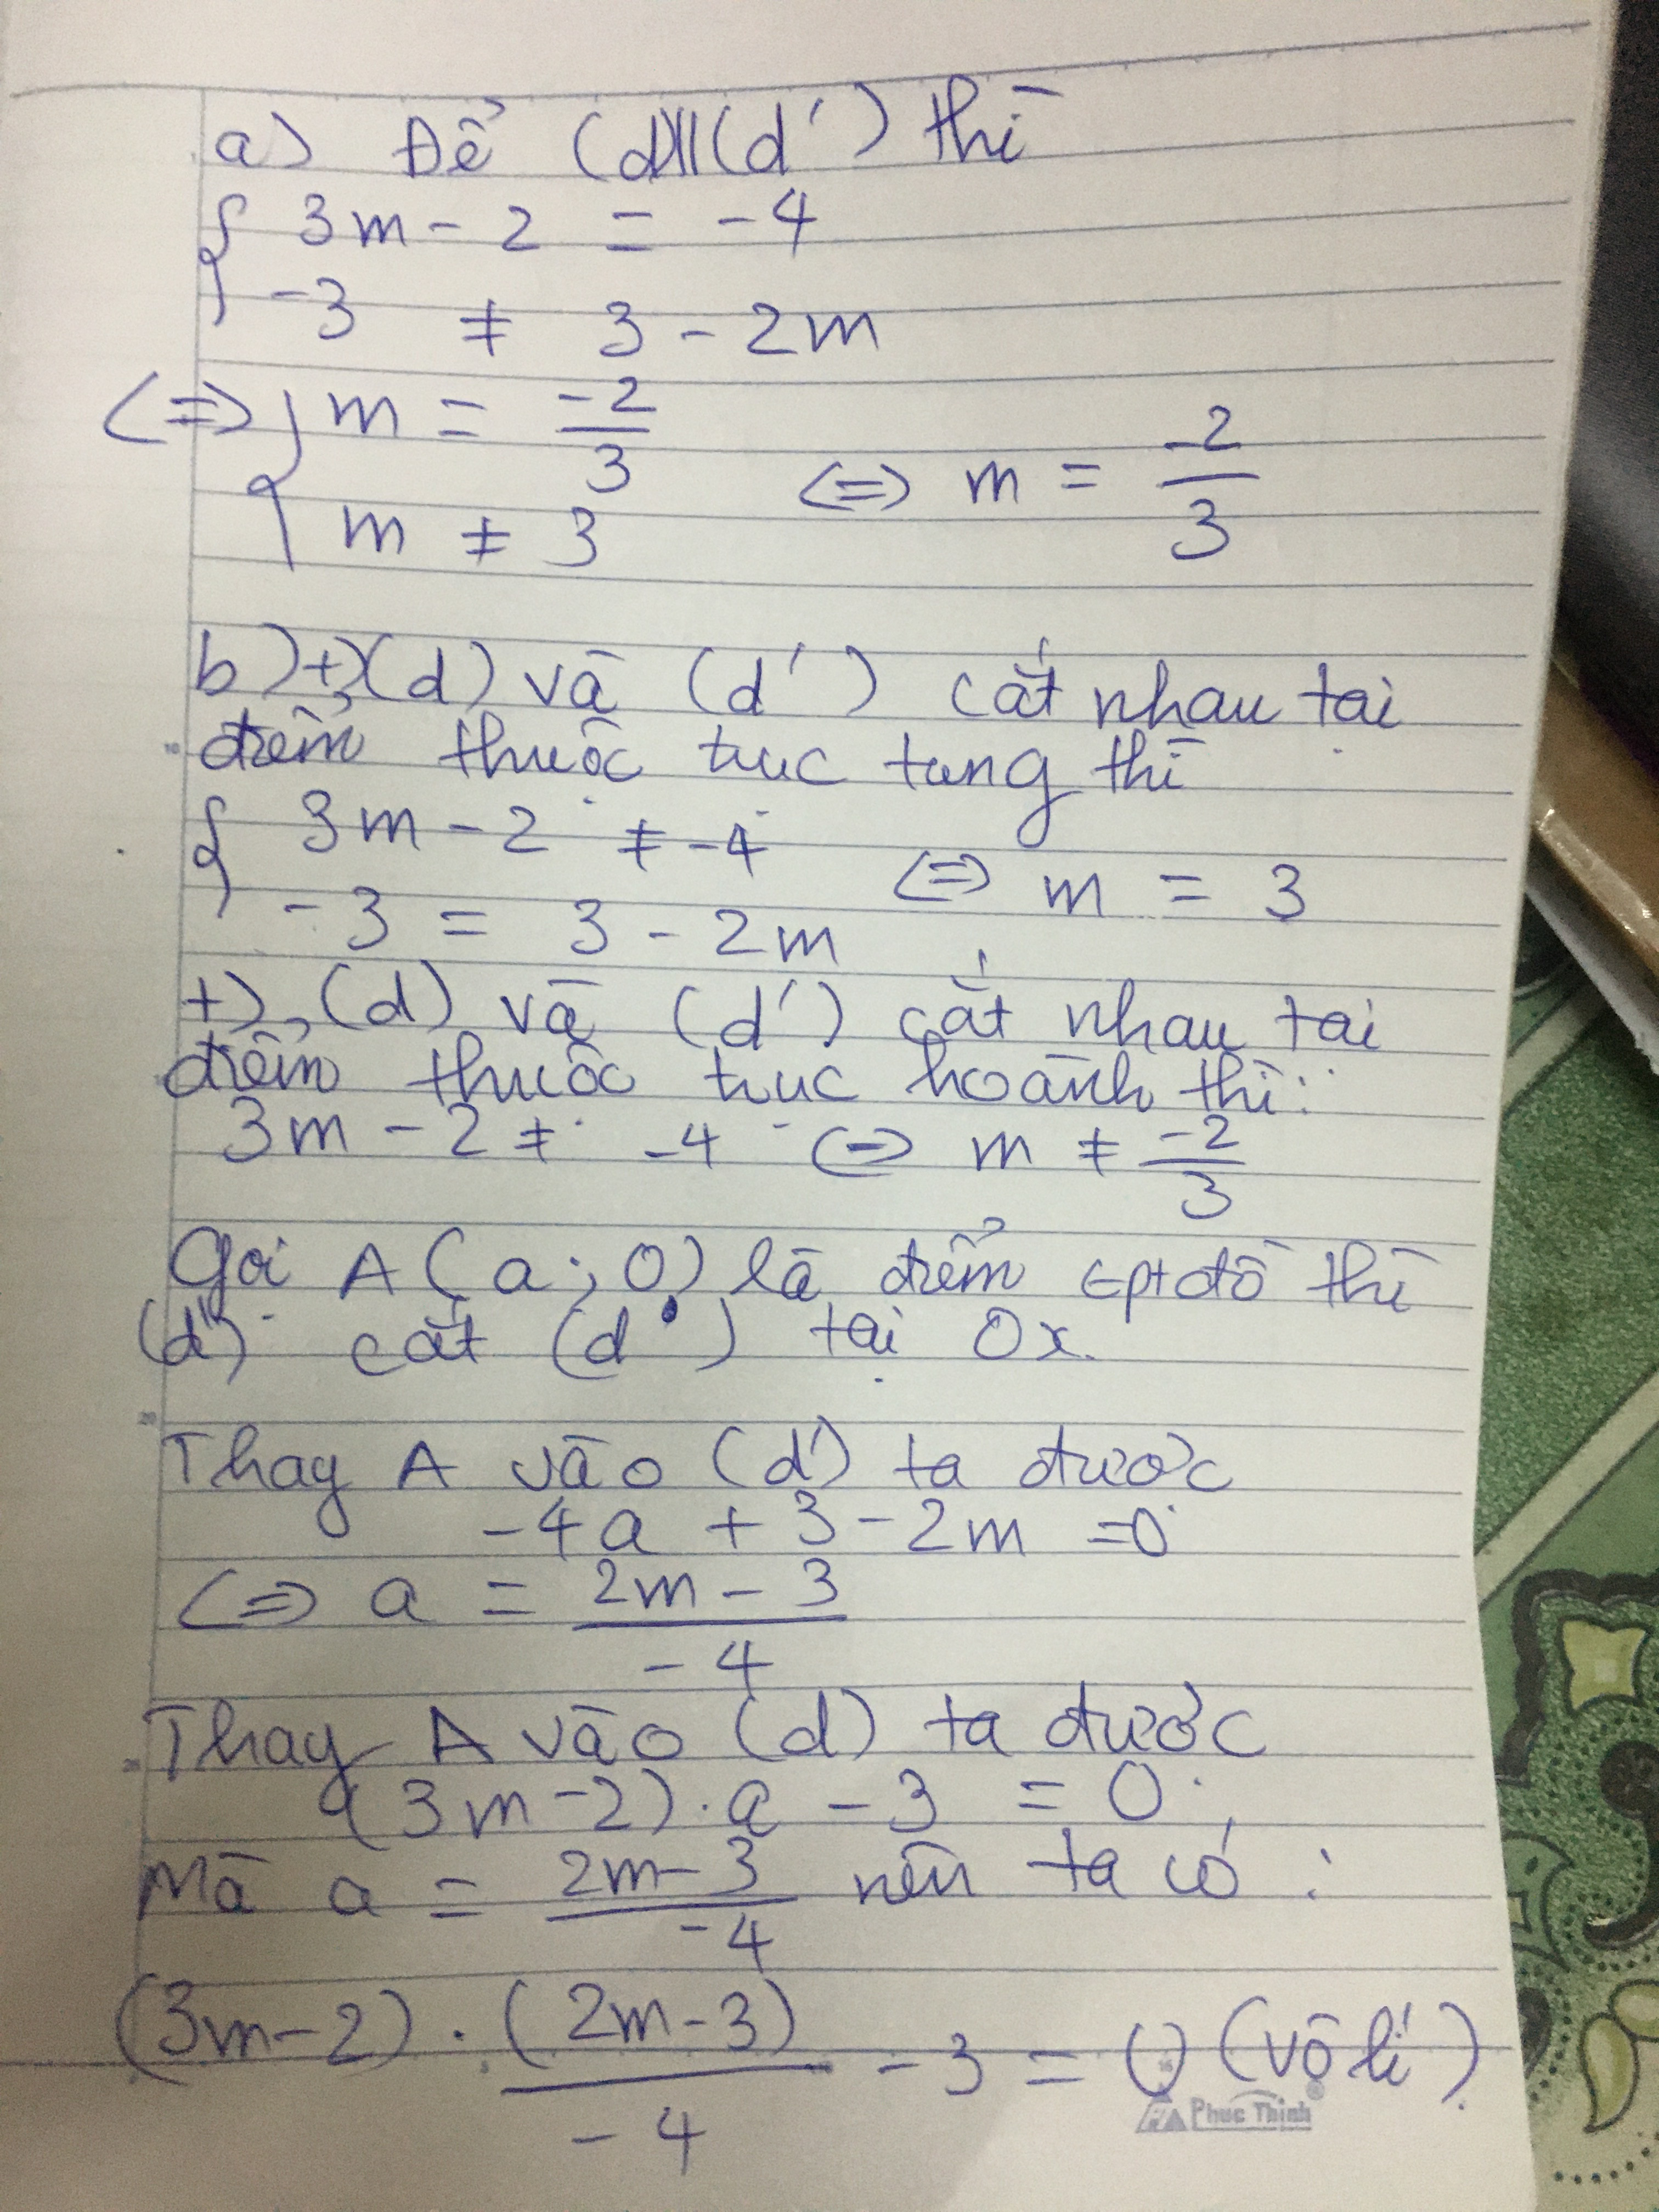 a) Để (d)//(d') thì
{ 3m - 2 = -4
-3 ≠ 3 - 2m
<=> { m = -2/3
m ≠ 3 <=> m = -2/3
b) +) (d) và (d') cắt nhau tại
điểm thuộc trục tung thì
{ 3m - 2 ≠ -4
-3 = 3 - 2m <=> m = 3
+) (d) và (d') cắt nhau tại
điểm thuộc trục hoành thì:
3m - 2 ≠ -4 <=> m ≠ -2/3
Gọi A(a; 0) là điểm đồ thị
(d) cắt (d') tại Ox.
Thay A vào (d') ta được
-4a + 3 - 2m = 0
<=> a = 2m - 3 / -4
Thay A vào (d) ta được
(3m - 2).a - 3 = 0
Mà a = 2m - 3 / -4 nên ta có:
(3m - 2) . (2m - 3) / -4 - 3 = 0 (vô lí)
Phuc Thinh